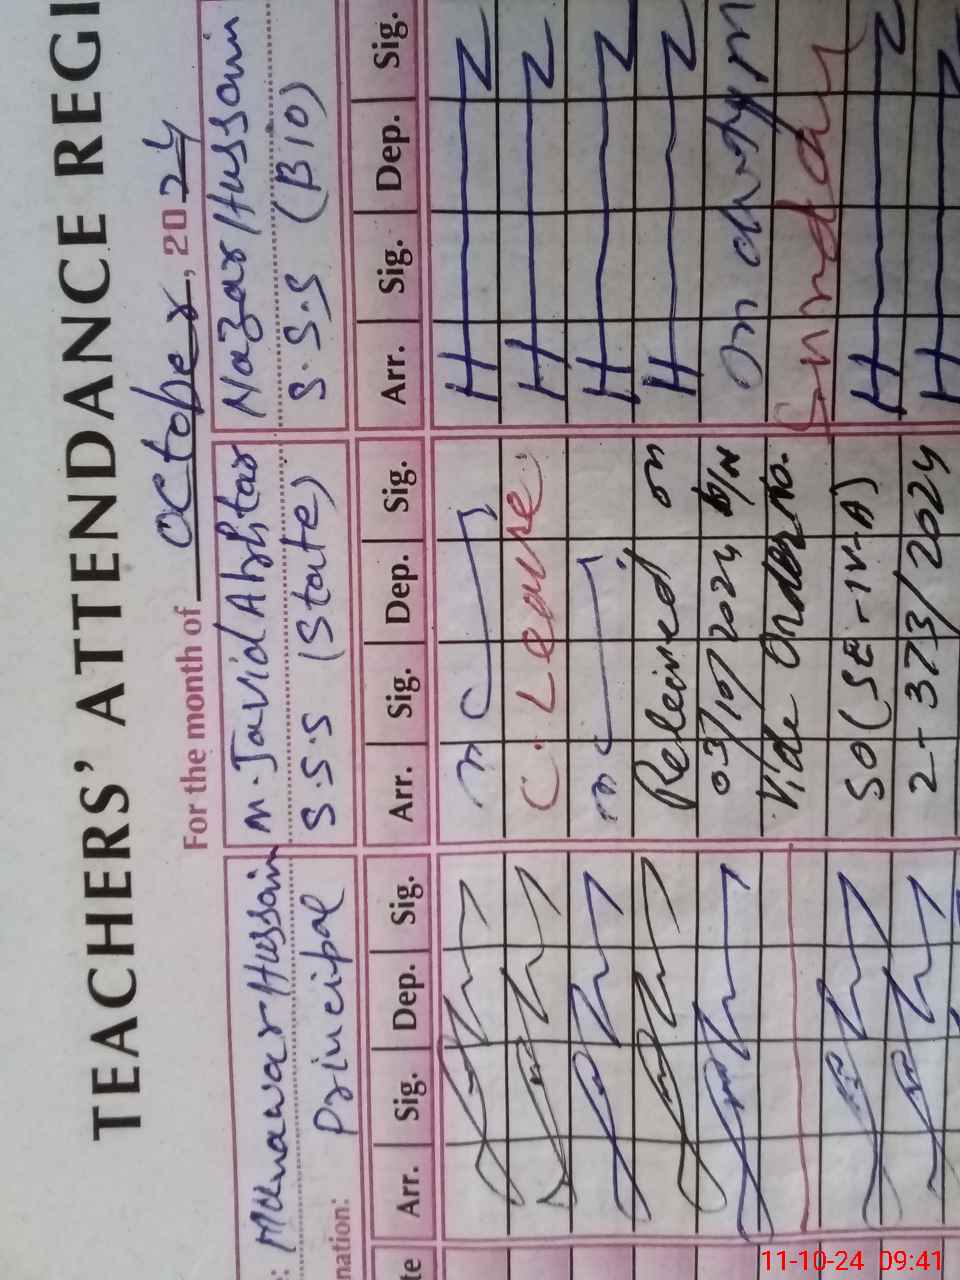 TEACHERS' ATTENDANCE REGI
For the month of October, 2024
: Munawar Hussain M. Javid Akhtar Nazar Hussain
nation: Principal S.S.S (State) S.S.S (BIO)
te Arr. Sig. Dep. Sig. Arr. Sig. Dep. Sig. Arr. Sig. Dep. Sig.
C. Leave
Releived on
03/10/2024 On duty
Vide Order No. Sunday
SO (SE-IV-A)
2-373/2024
11-10-24 09:41